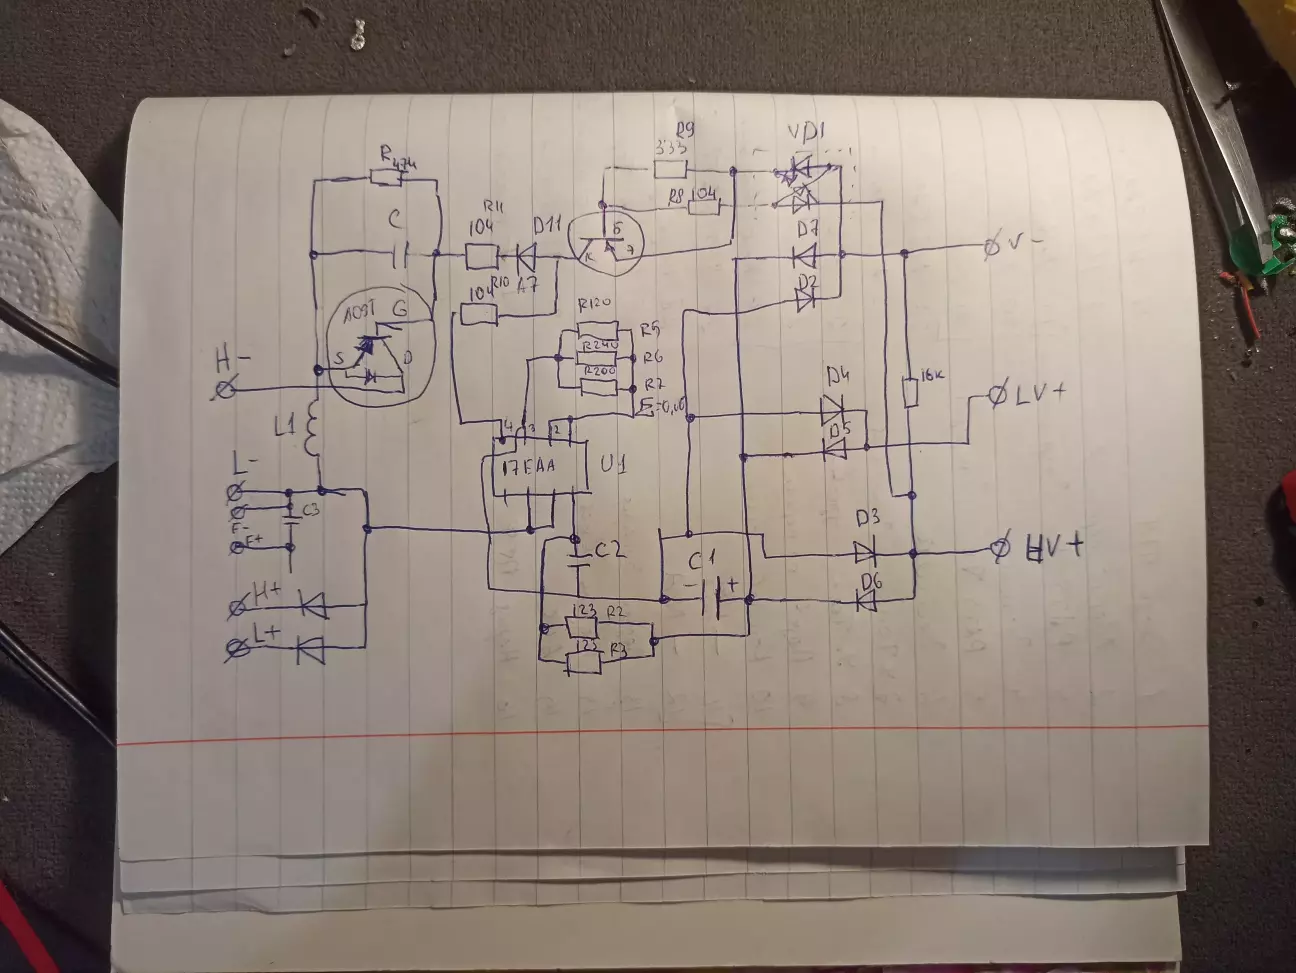 R9
333
VD1
R 474
R8 104
C
R11
104
D11
Б
К
Э
D7
V-
R10
104
A7
D2
A09T
G
S
D
R120
R240
R200
R5
R6
R7
H-
16K
D4
LV+
L1
D5
4 3 2
17EAA
U1
L-
C3
E-
E+
D3
HV+
C2
C1
- +
D6
H+
123 R2
L+
123 R3